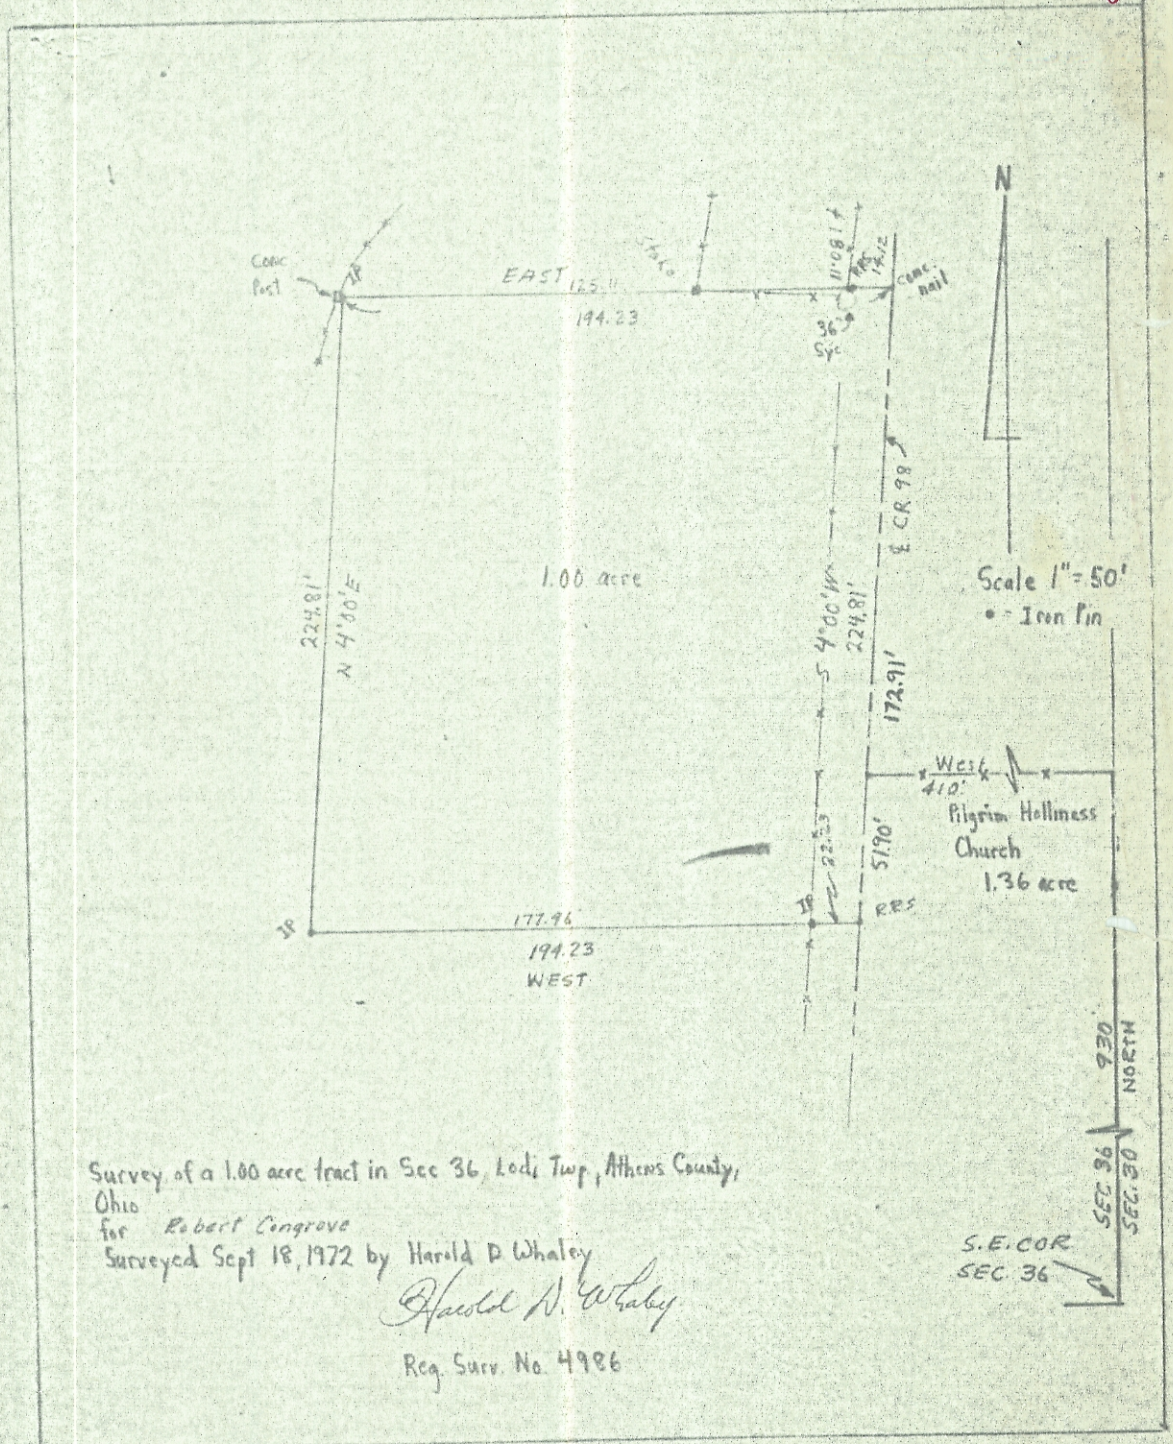 N
Conc
Post
IP
EAST 125.11
194.23
Stake
180.11
RRS
14.12
Conc.
nail
36"
Syc
₵ CR 98
224.81'
N 4°00'E
1.00 acre
S 4°00'W
224.81'
172.91'
Scale 1" = 50'
• = Iron Pin
West
410'
Pilgrim Holliness
Church
1.36 acre
22.23
51.90'
IP
177.96
IP
RRS
194.23
WEST
930'
NORTH
SEC 36
SEC. 30
S.E. COR
SEC. 36
Survey of a 1.00 acre tract in Sec 36, Lodi Twp, Athens County,
Ohio
for Robert Congrove
Surveyed Sept 18, 1972 by Harold D Whaley
Harold D. Whaley
Reg. Surv. No. 4986